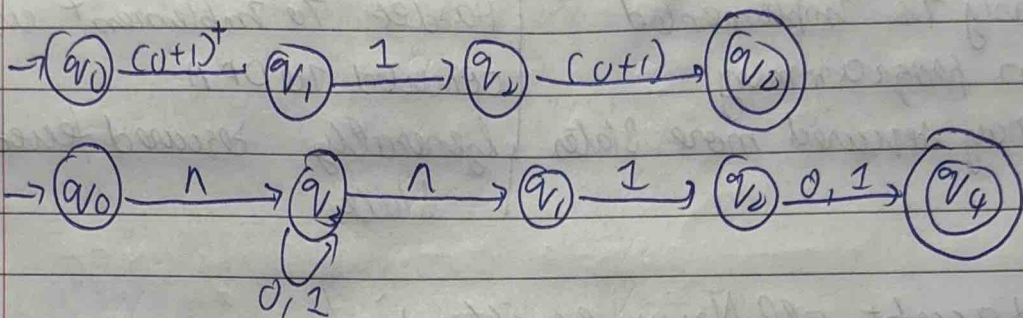 → q0 (0+1)+ q1 1 q2 (0+1) q3
→ q0 ʌ q3 ʌ q1 1 q2 0,1 q4
0,1